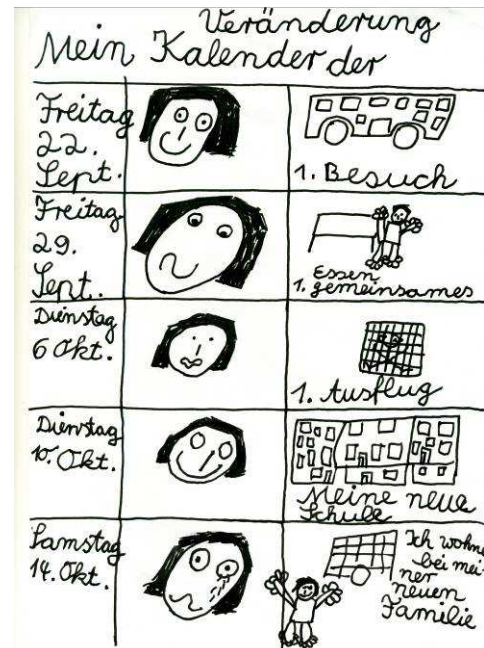 Veränderung
Mein Kalender der
Freitag
22.
Sept.
1. Besuch
Freitag
29.
Sept.
Essen
1. gemeinsames
Dienstag
6 Okt.
1. Ausflug
Dienstag
10. Okt.
Meine neue
Schule
Samstag
14. Okt.
Ich wohne
bei mei-
ner
neuen
Familie